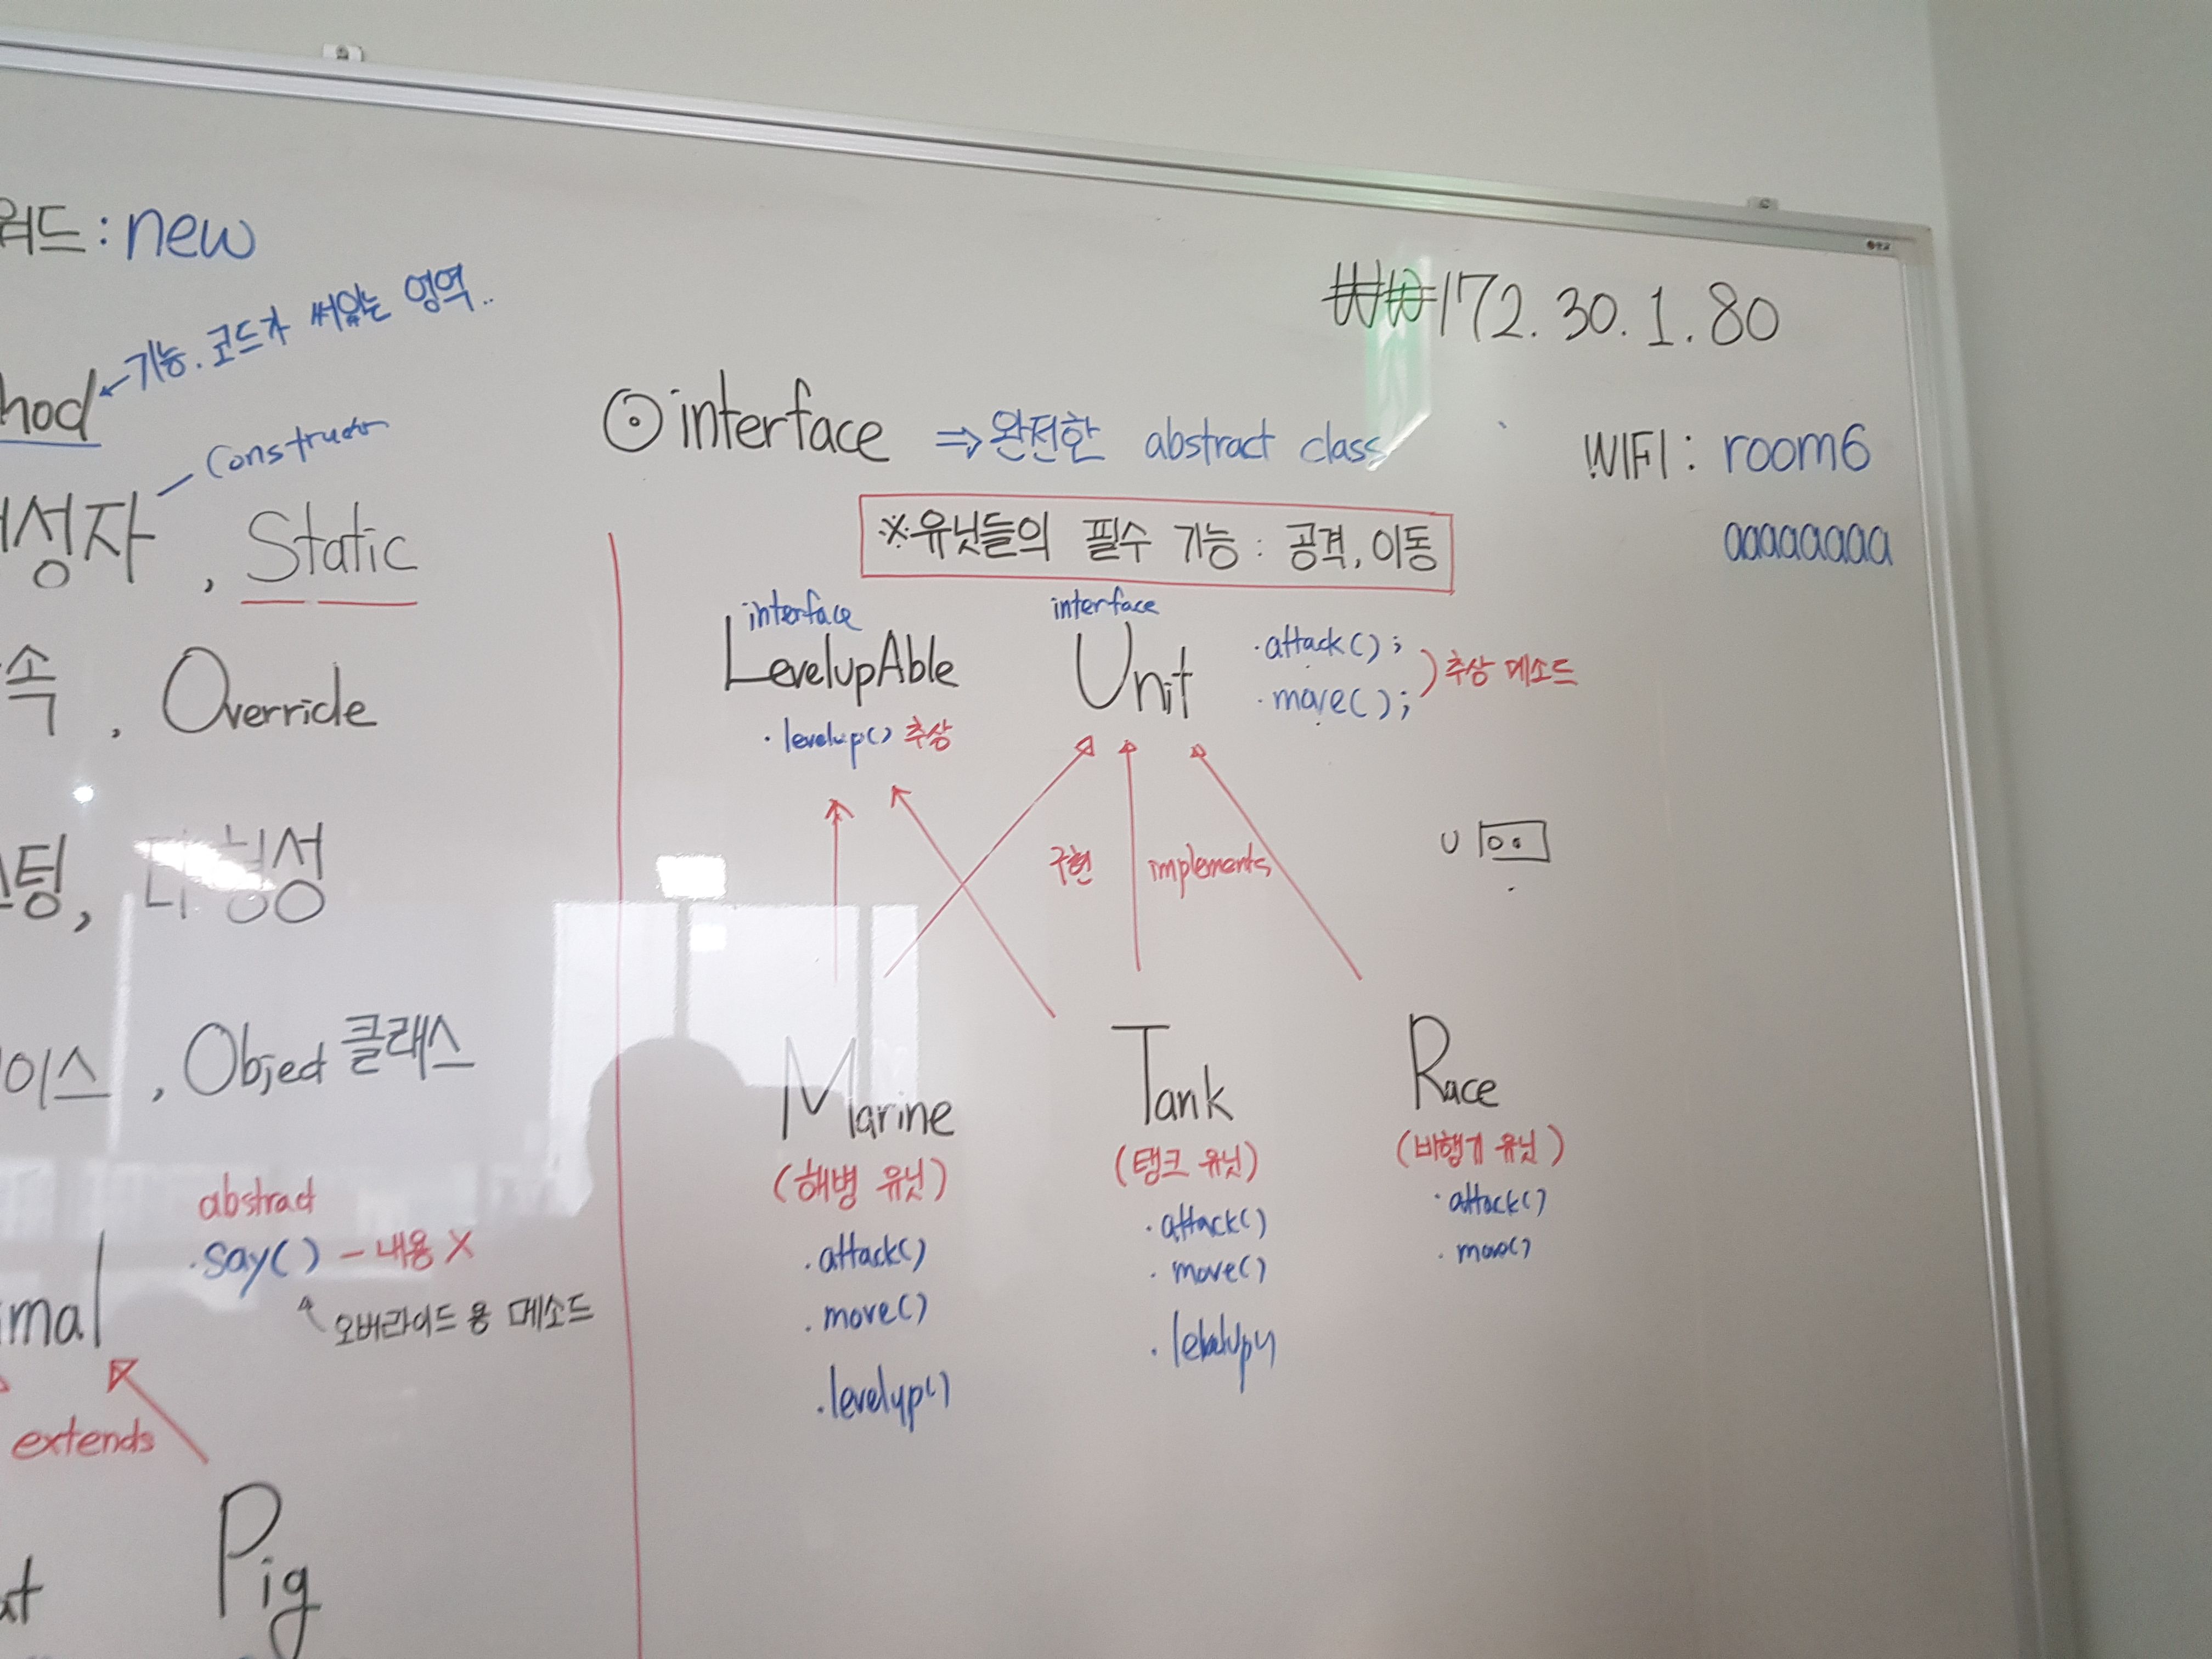 워드 : new
기능. 코드가 써있는 영역..
hod
Constructor
성자 , Static
속 , Override
스팅, 다형성
이스 , Object 클래스
abstract
.say() - 내용 X
오버라이드 용 메소드
mal
extends
Pig
₩₩172.30.1.80
WIFI : room6
aaaaaaaa
⊙ interface ⇒ 완전한 abstract class
※유닛들의 필수 기능 : 공격, 이동
interface
LevelupAble
. levelup() 추상
interface
Unit
. attack() ;
. move() ;
) 추상 메소드
구현 implements
U
Marine
(해병 유닛)
. attack()
. move()
. levelup()
Tank
(탱크 유닛)
. attack()
. move()
. levelup()
Race
(비행기 유닛)
. attack()
. move()